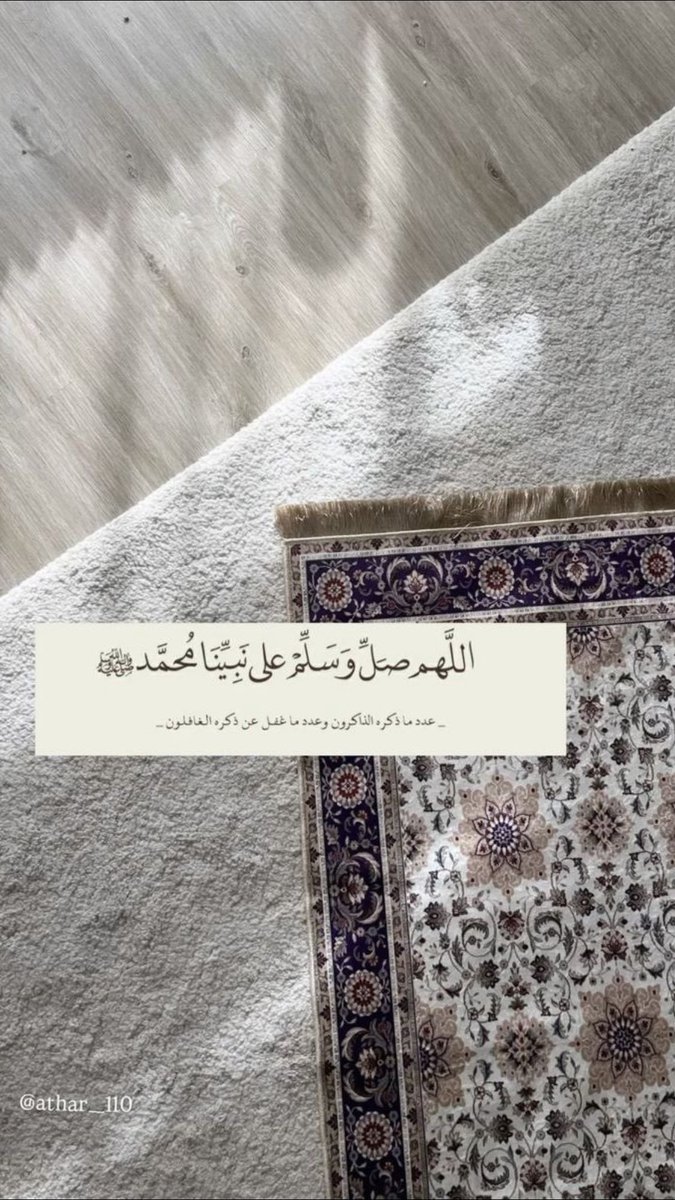 اللَّهم صَلِّ وَسَلِّمْ على نَبِيِّنَا مُحمَّد ﷺ
_ عدد ما ذكره الذاكرون وعدد ما غفل عن ذكره الغافلون _
@athar_110